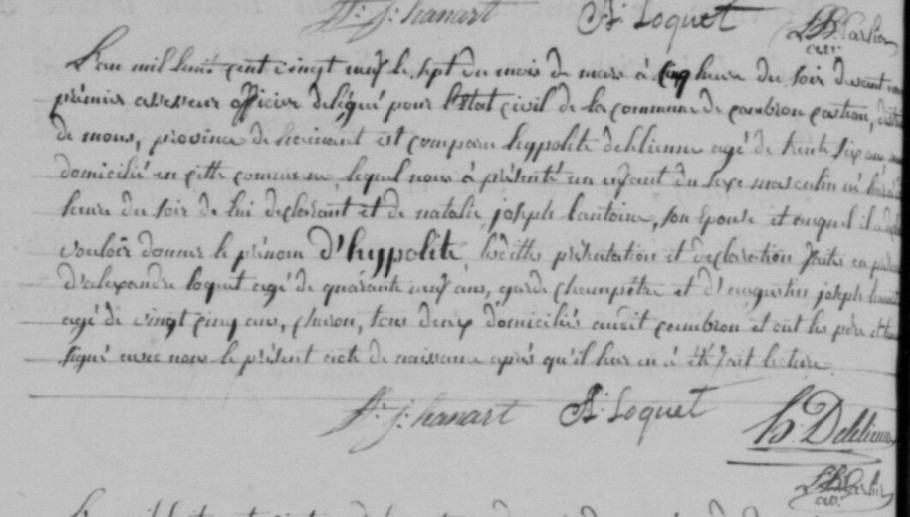 A: j: hanart A: Loquet
L'an mil huit cent vingt neuf le sept du mois de mars à cinq heure du soir devant nous
prémier assesseur officier délégué pour l'état civil de la commune de cambron castiau,
de mons, province de hainaut est comparu hyppolite delienne agé de trente six ans,
domicilié en cette commune, lequel nous à présenté un enfant du sexe masculin né hier à
heure du soir de lui déclarant et de natalie joseph lantoine, son épouse et auquel il a déclaré
vouloir donner le prénom d'hyppolite, lesdittes présentation et declaration faites en présence
d'alexandre loquet agé de quarante neuf ans, garde champêtre et d'augustin joseph hanart
agé de vingt cinq ans, charon, tous deux domiciliés audit cambron et ont les père et témoins
signé avec nous le présent acte de naissance après qu'il leur en à été fait lecture.
A: j: hanart A: Loquet
h: Delienne